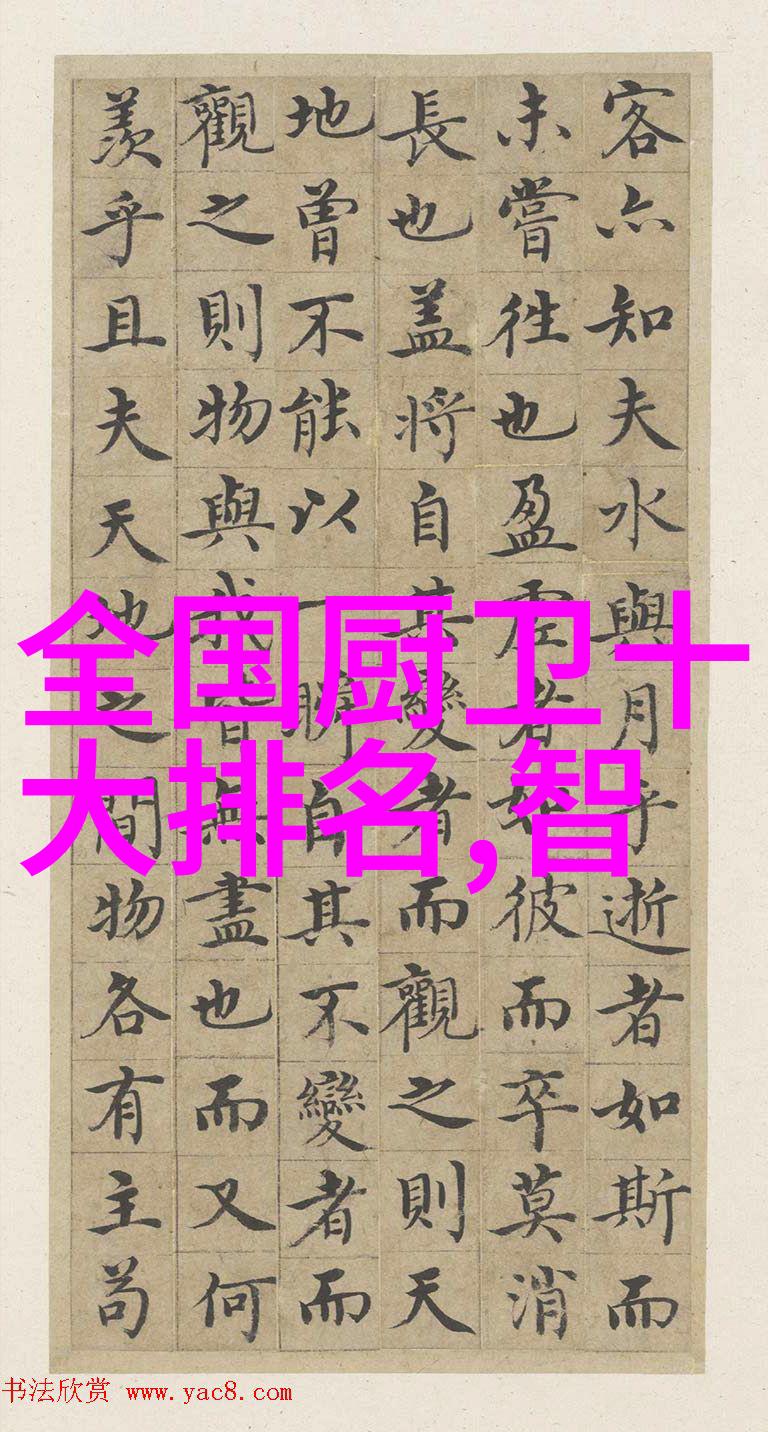 客亦知夫水與月乎逝者如斯而
未嘗往也盈虛者如彼而卒莫消
長也蓋將自其變者而觀之則天
地曾不能以一瞬自其不變者而
觀之則物與我皆無盡也而又何
羨乎且夫天地之間物各有主苟
全国厨卫十
大排名,智
书法欣赏 www.yac8.com